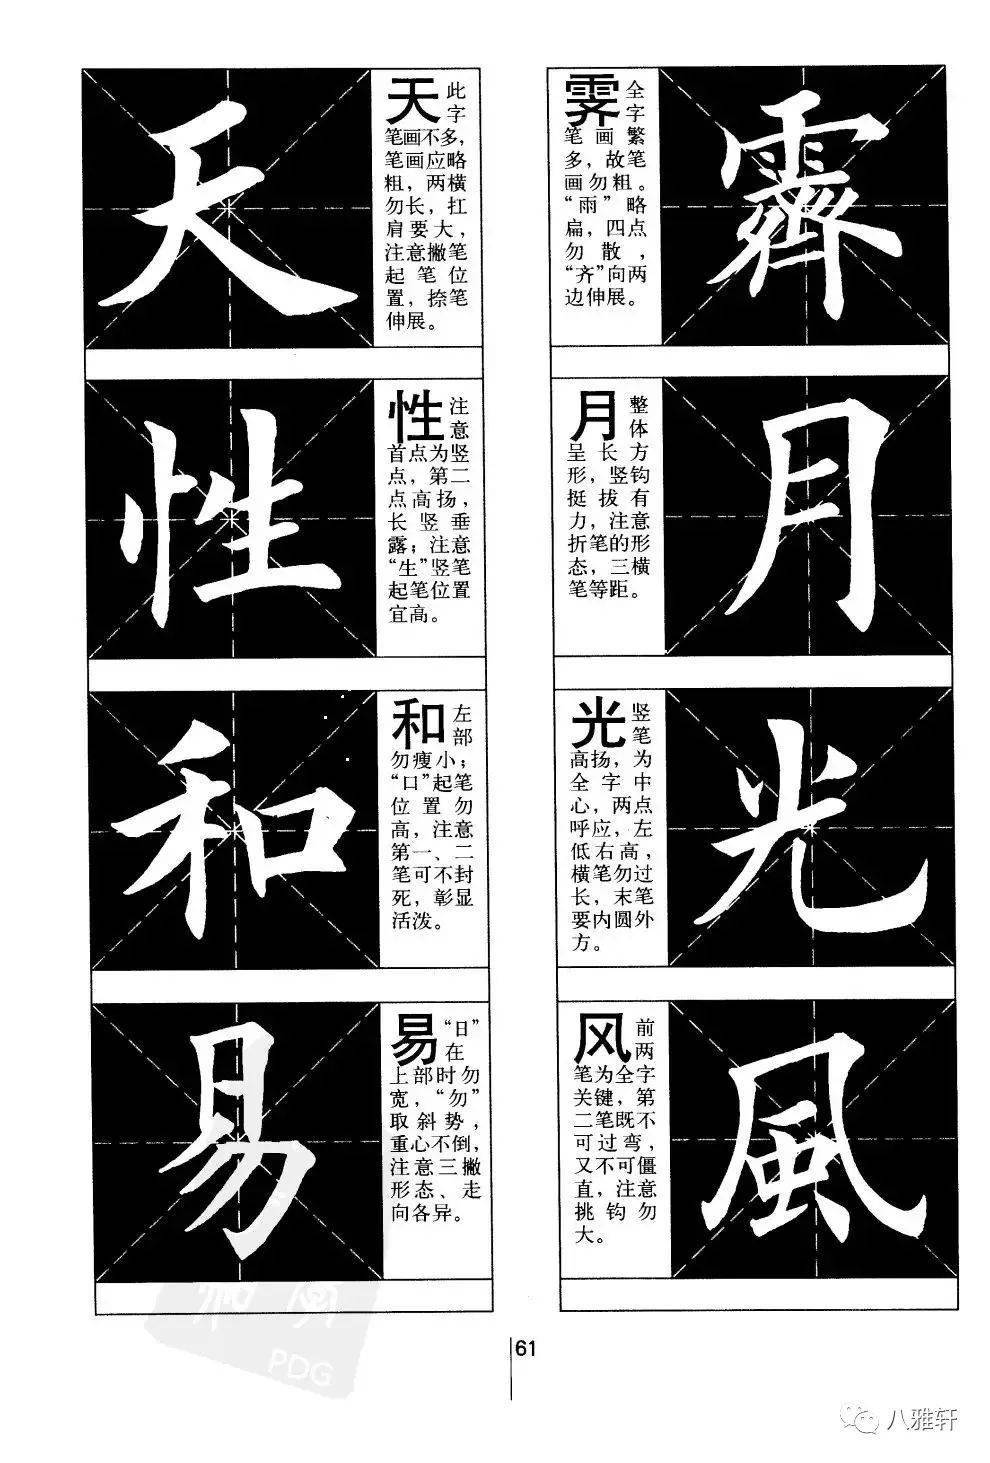 天
天此字
笔画不多，
笔画应略
粗，两横
勿长，扛
肩要大，
注意撇笔
起笔位
置，捺笔
伸展。
性
性注意
首点为竖
点，第二
点高扬，
长竖垂
露；注意
“生”竖笔
起笔位置
宜高。
和
和左部
勿瘦小；
“口”起笔
位置勿
高，注意
第一、二
笔可不封
死，彰显
活泼。
易
易“日”在
上部时勿
宽，“勿”
取斜势，
重心不倒，
注意三撇
形态、走
向各异。
霁全字
笔画繁
多，故笔
画勿粗。
“雨”略
扁，四点
勿散，
“齐”向两
边伸展。
霽
月整体
呈长方
形，竖钩
挺拔有
力，注意
折笔的形
态，三横
笔等距。
月
光竖笔
高扬，为
全字中
心，两点
呼应，左
低右高，
横笔勿过
长，末笔
要内圆外
方。
光
风前两
笔为全字
关键，第
二笔既不
可过弯，
又不可僵
直，注意
挑钩勿
大。
風
61
PDG
八雅轩